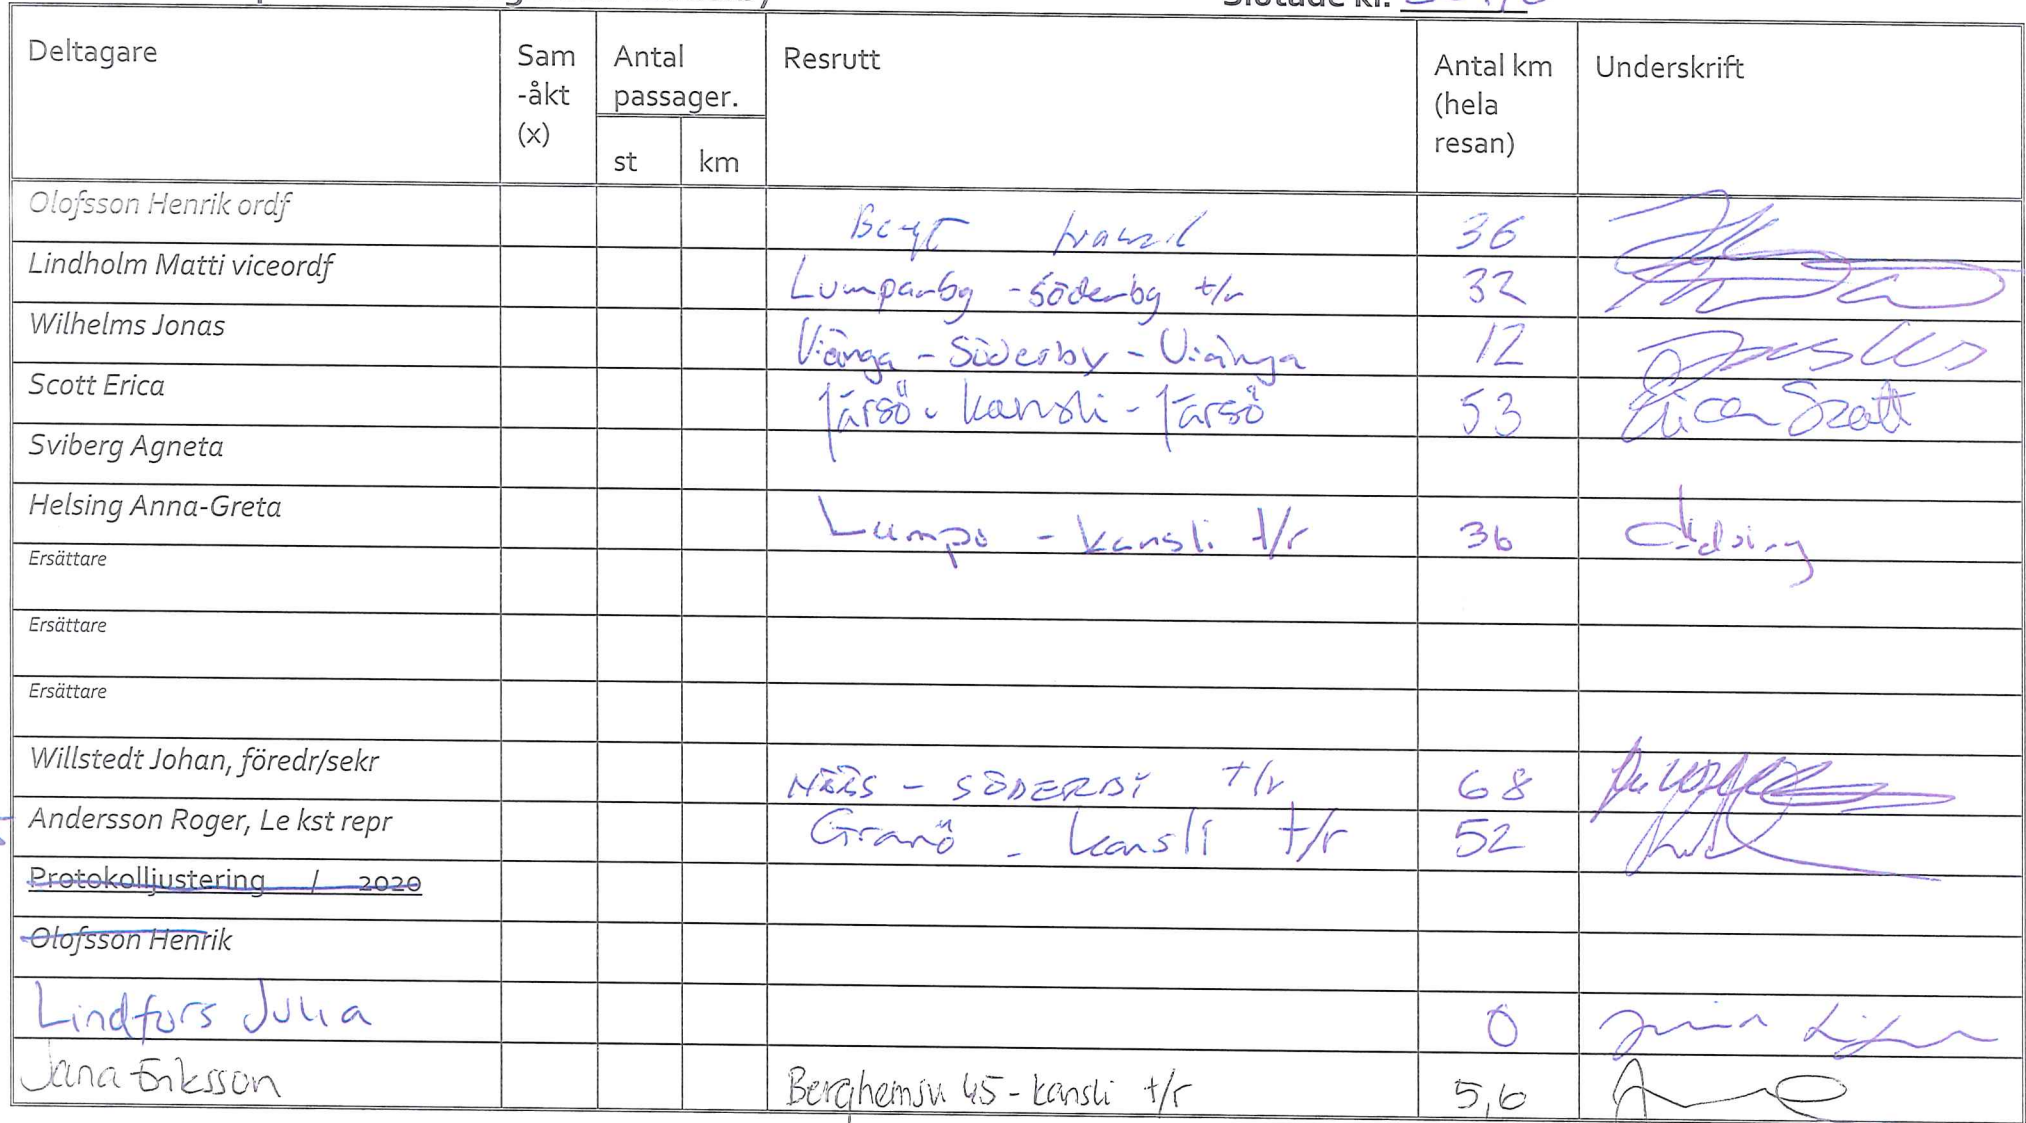 Slutade kl.
Deltagare Sam Antal Resrutt Antal km Underskrift
-åkt passager. (hela
(x) st km resan)
Olofsson Henrik ordf 36
Lindholm Matti viceordf Lumparby - Söderby t/r 32
Wilhelms Jonas Viånga - Söderby - Viånga 12
Scott Erica Järsö - kansli - Järsö 53 Erica Scott
Sviberg Agneta
Helsing Anna-Greta Lumpo - kansli t/r 36
Ersättare
Ersättare
Ersättare
Willstedt Johan, föredr/sekr NÄÄS - SÖDERBY t/r 68
Andersson Roger, Le kst repr Granö - kansli t/r 52
Protokolljustering / 2020
Olofsson Henrik
Lindfors Julia 0
Jana Eriksson Berghemsv 45 - kansli t/r 5,6